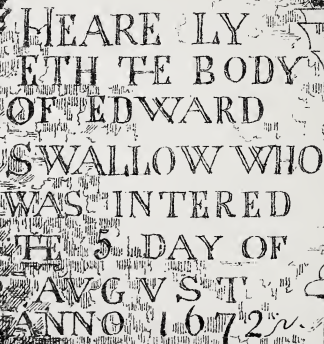 HEARE LY
ETH THE BODY
OF EDWARD
SWALLOW WHO
WAS INTERED
THE 5 DAY OF
AVGVST
ANNO 1672